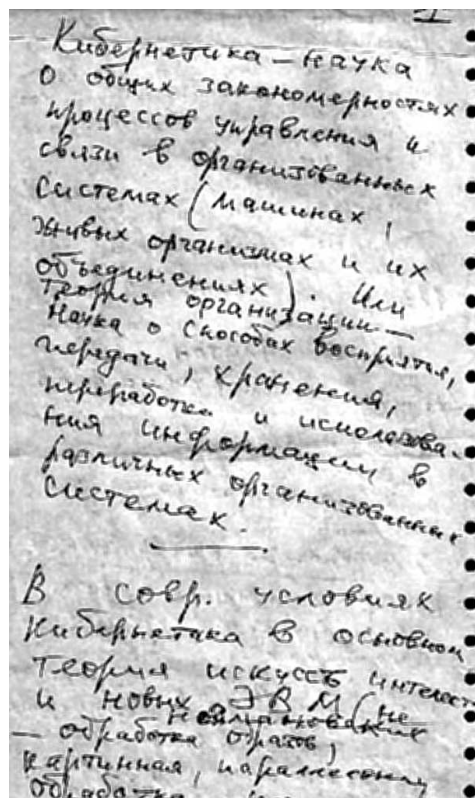 1
Кибернетика – наука
о общих закономерностях
процессов управления и
связи в организованных
системах (машинах,
живых организмах и их
объединениях). Или
Теория организации –
Наука о способах восприятия,
передачи, хранения,
переработке и использова-
ния информации в
различных организованных
системах.
В совр. условиях
Кибернетика в основном
теория искусств интелект
и новых ЭВМ (не
неймановских
– обработка образов,
картинная, параллельная
обработка